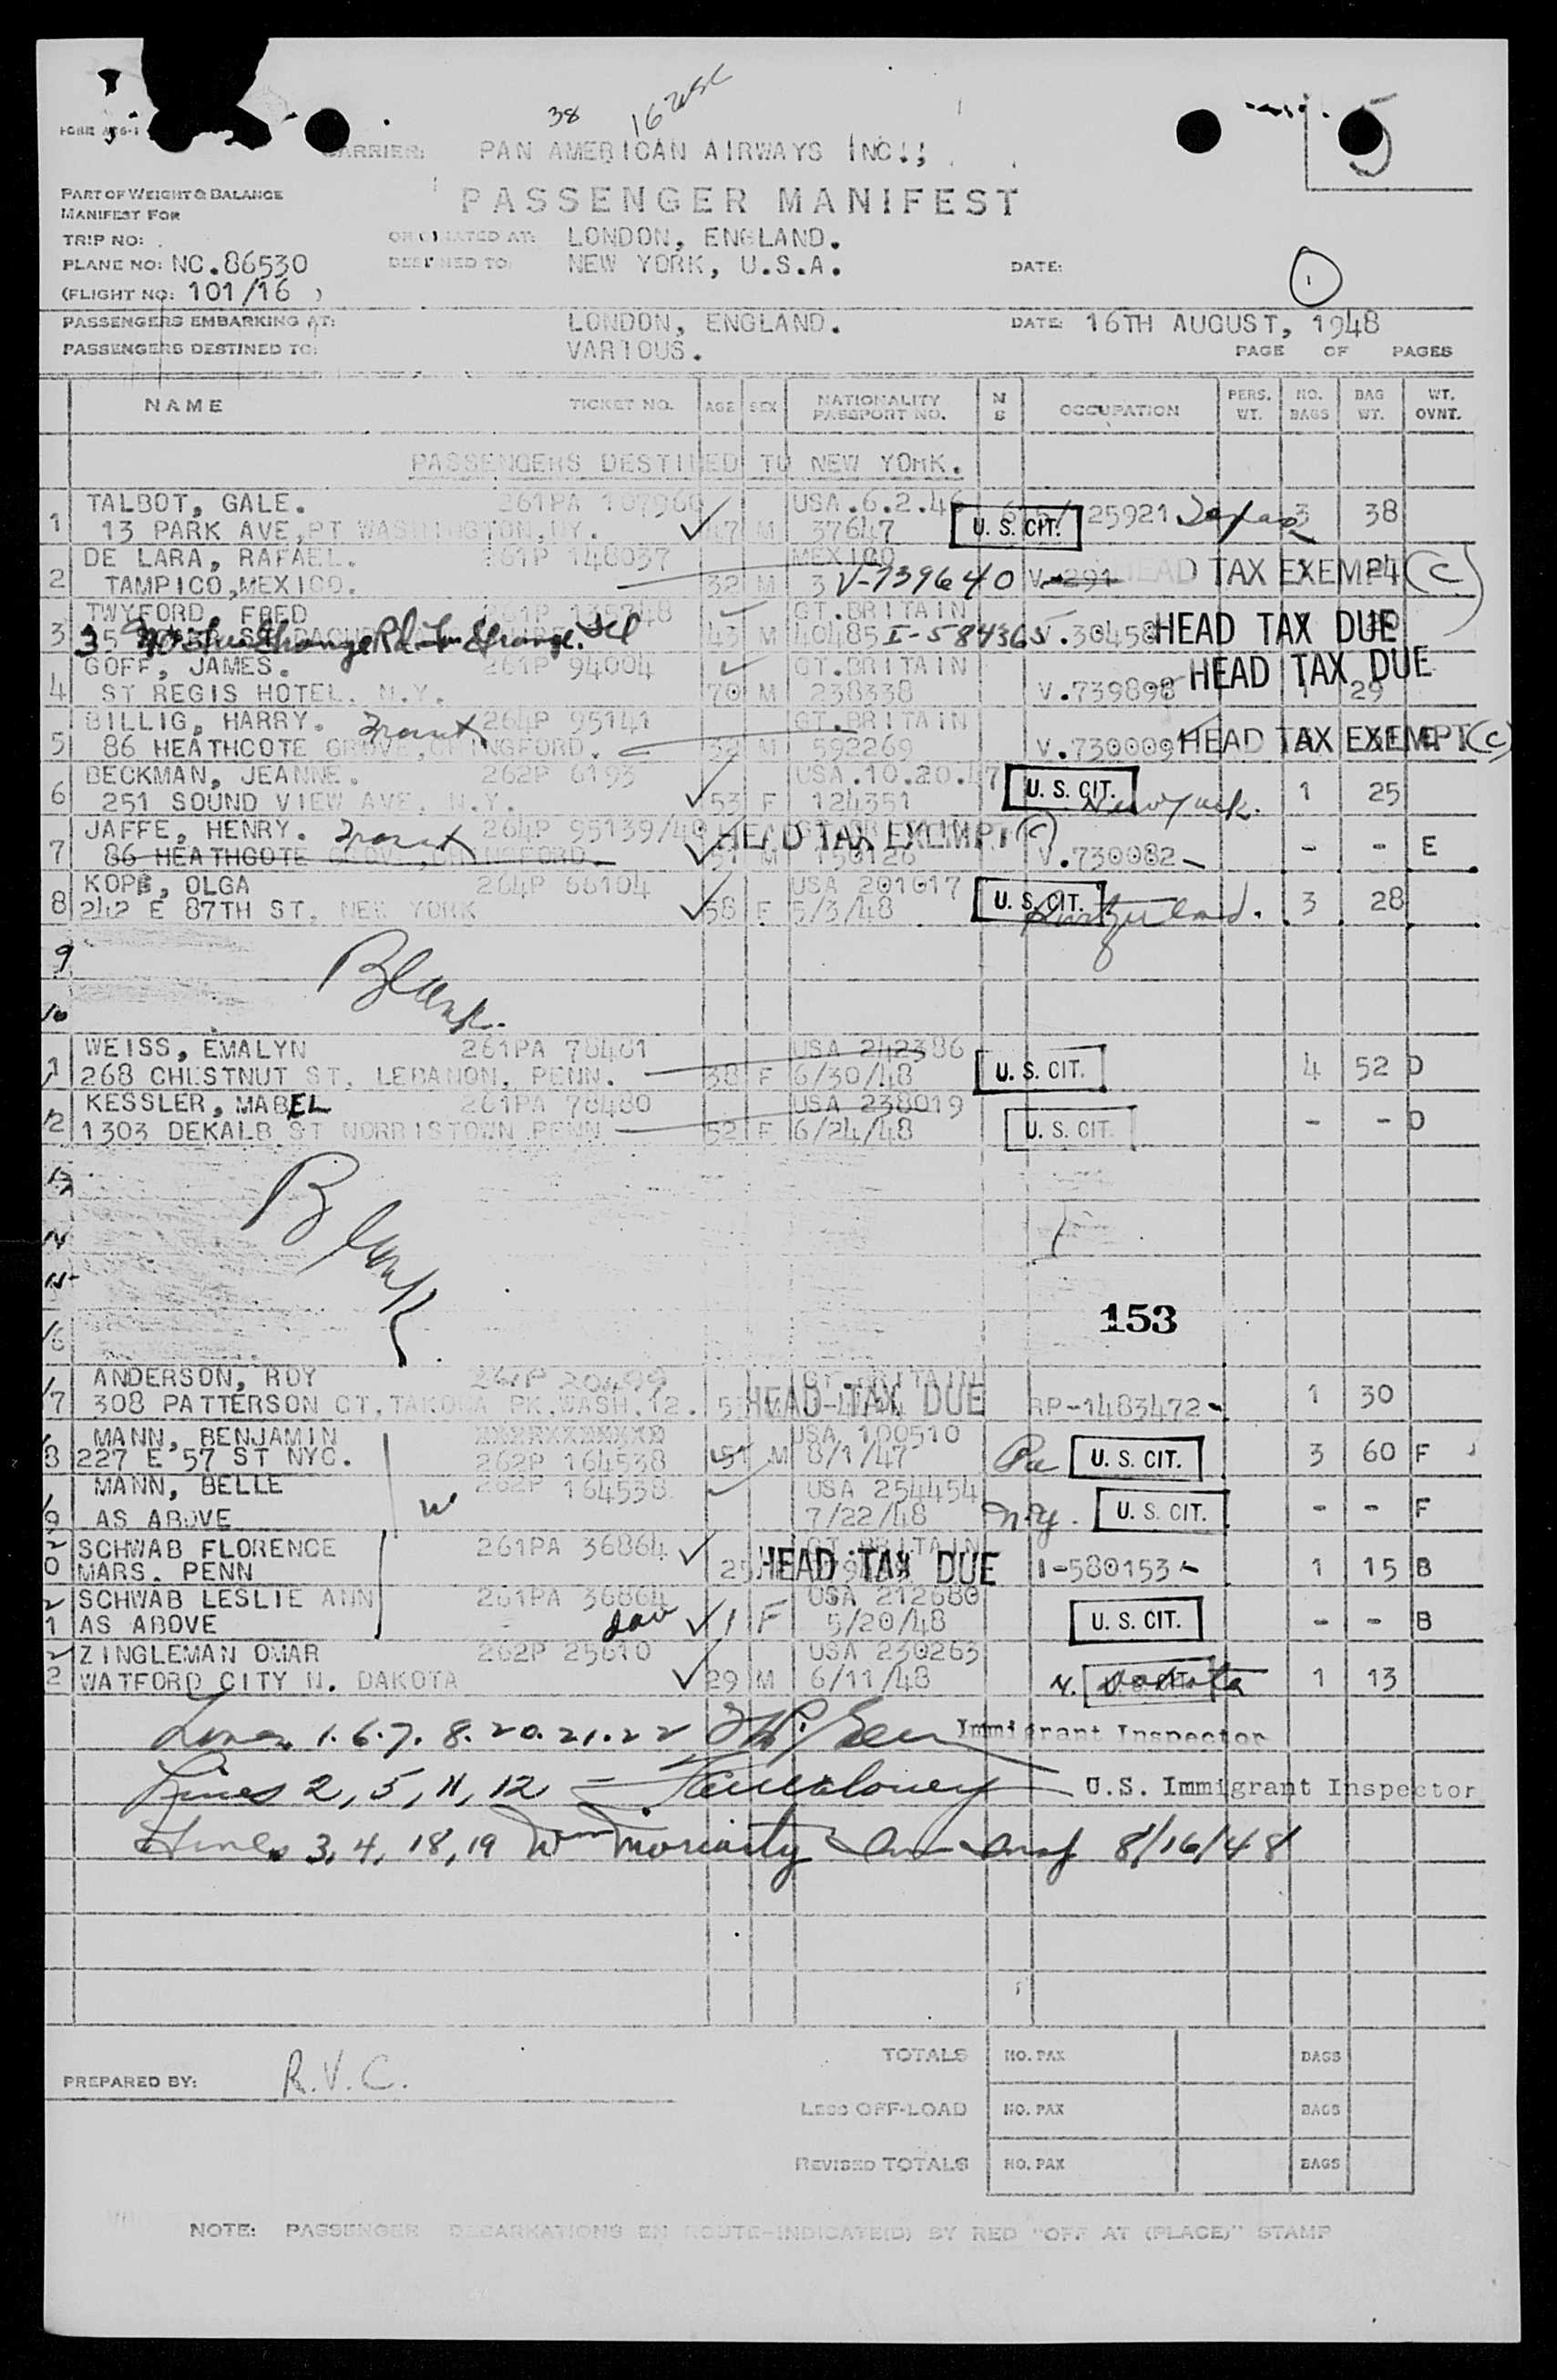 38
CARRIER: PAN AMERICAN AIRWAYS INC.,
5
PART OF WEIGHT & BALANCE
MANIFEST FOR
PASSENGER MANIFEST
TRIP NO:
ORIGINATED AT: LONDON, ENGLAND.
PLANE NO: NC.86530
DESTINED TO: NEW YORK, U.S.A.
DATE:
1
(FLIGHT NO: 101/16 )
PASSENGERS EMBARKING AT: LONDON, ENGLAND. DATE: 16TH AUGUST, 1948
PASSENGERS DESTINED TO: VARIOUS. PAGE OF PAGES
NAME TICKET NO. AGE SEX NATIONALITY PASSPORT NO. OCCUPATION PERS. WT. NO. BAGS BAG WT. WT. OVNT.
PASSENGERS DESTINED TO NEW YORK.
1 TALBOT, GALE. 261PA 107960 USA.6.2.46
13 PARK AVE, PT WASHINGTON, NY. 47 M 37647 U. S. CIT. 25921 Texas 3 38
2 DE LARA, RAFAEL. 261P 148037 MEXICO
TAMPICO, MEXICO. 32 M 3 V-739640 HEAD TAX EXEMPT (C) 24
3 TWYFORD, FRED 261P GT.BRITAIN
43 M 40485 I-58436 V.30458 HEAD TAX DUE
4 GOFF, JAMES. 261P 94004 GT.BRITAIN
ST REGIS HOTEL, N.Y. 70 M 238338 V.739898 HEAD TAX DUE 1 29
5 BILLIG, HARRY. Transit 264P 95141 GT.BRITAIN
86 HEATHCOTE GROVE, CHINGFORD. 32 M 592269 V.730009 HEAD TAX EXEMPT (C)
6 BECKMAN, JEANNE. 262P 6193 USA.10.20.47
251 SOUND VIEW AVE, N.Y. 53 F 124351 U. S. CIT. New York. 1 25
7 JAFFE, HENRY. Transit 264P 95139/40 HEAD TAX EXEMPT (C)
86 HEATHCOTE GROVE, CHINGFORD. 51 M 150126 V.730082 - - E
8 KOPP, OLGA 264P 66104 USA 201017
242 E 87TH ST, NEW YORK 58 F 5/3/48 U. S. CIT. Switzerland. 3 28
9
10
Blank.
11 WEISS, EMALYN 261PA 78481 USA 242386
268 CHESTNUT ST, LEBANON, PENN. 38 F 6/30/48 U. S. CIT. 4 52 D
12 KESSLER, MABEL 261PA 78480 USA 238019
1303 DEKALB ST NORRISTOWN PENN 52 F 6/24/48 U. S. CIT. - - D
13
14
15
16
Blank
153
17 ANDERSON, ROY 261P 20499 GT.BRITAIN
308 PATTERSON CT, TAKOMA PK, WASH. 12. HEAD TAX DUE RP-1483472 1 30
18 MANN, BENJAMIN USA 100510
227 E 57 ST NYC. 262P 164538 51 M 8/1/47 Pa U. S. CIT. 3 60 F
19 MANN, BELLE 262P 164538 USA 254454
AS ABOVE W 7/22/48 N.Y. U. S. CIT. - - F
20 SCHWAB FLORENCE 261PA 36864 GT.BRITAIN
MARS. PENN 25 HEAD TAX DUE I-580153 1 15 B
21 SCHWAB LESLIE ANN 261PA 36864 USA 212680
AS ABOVE dau 1 F 5/20/48 U. S. CIT. - - B
22 ZINGLEMAN OMAR 262P 25610 USA 230263
WATFORD CITY N. DAKOTA 29 M 6/11/48 N. Dakota 1 13
Lines 1.6.7. 8. 20. 21. 22 Immigrant Inspector
Lines 2, 5, 11, 12 - U.S. Immigrant Inspector
Lines 3, 4, 18, 19 Wm Moriarty Imm Insp 8/16/48
PREPARED BY: R.V.C.
TOTALS NO. PAX BAGS
LESS OFF-LOAD NO. PAX BAGS
REVISED TOTALS NO. PAX BAGS
NOTE: PASSENGER DEBARKATIONS EN ROUTE-INDICATE(D) BY RED "OFF AT (PLACE)" STAMP